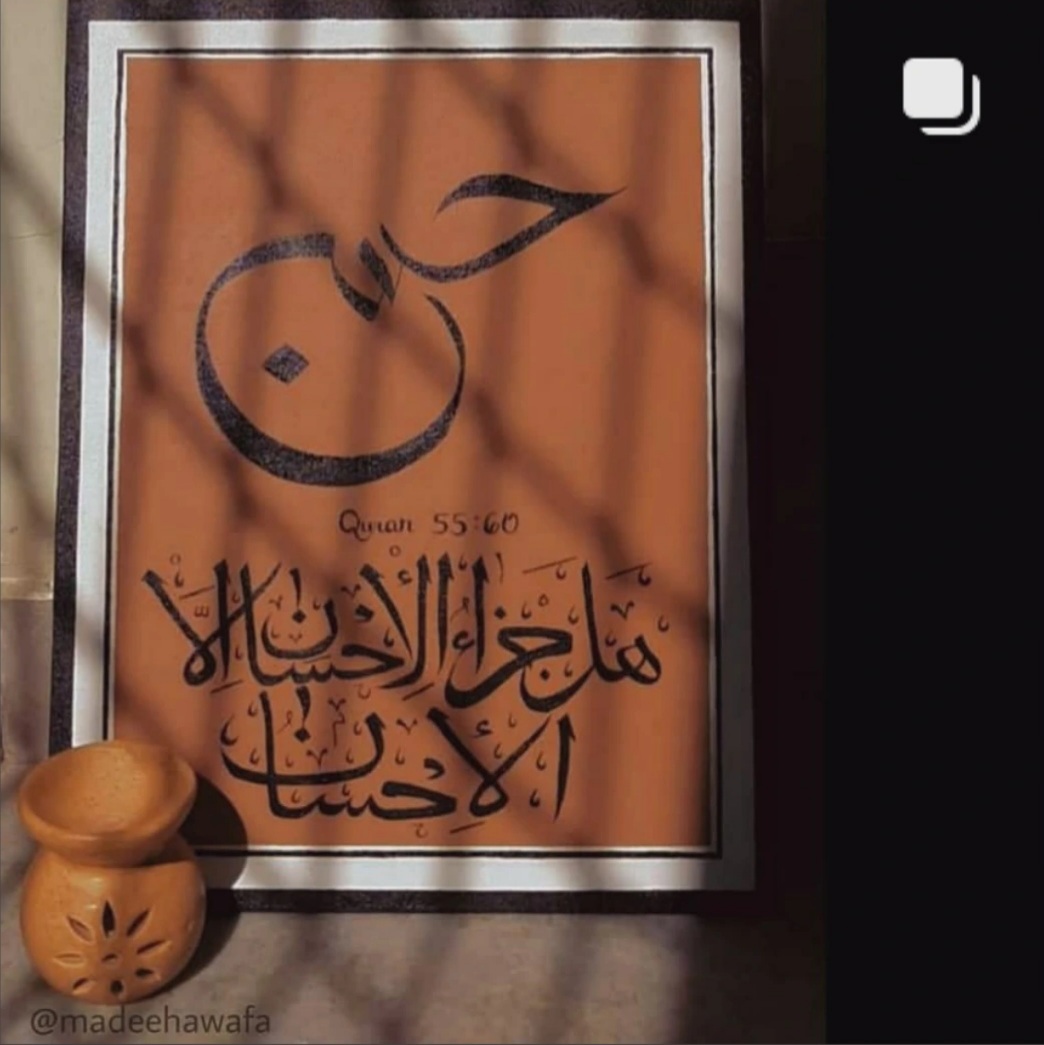 Quran 55:60
هَلْ جَزَاءُ الْإِحْسَانِ إِلَّا
الْإِحْسَانُ
@madeehawafa